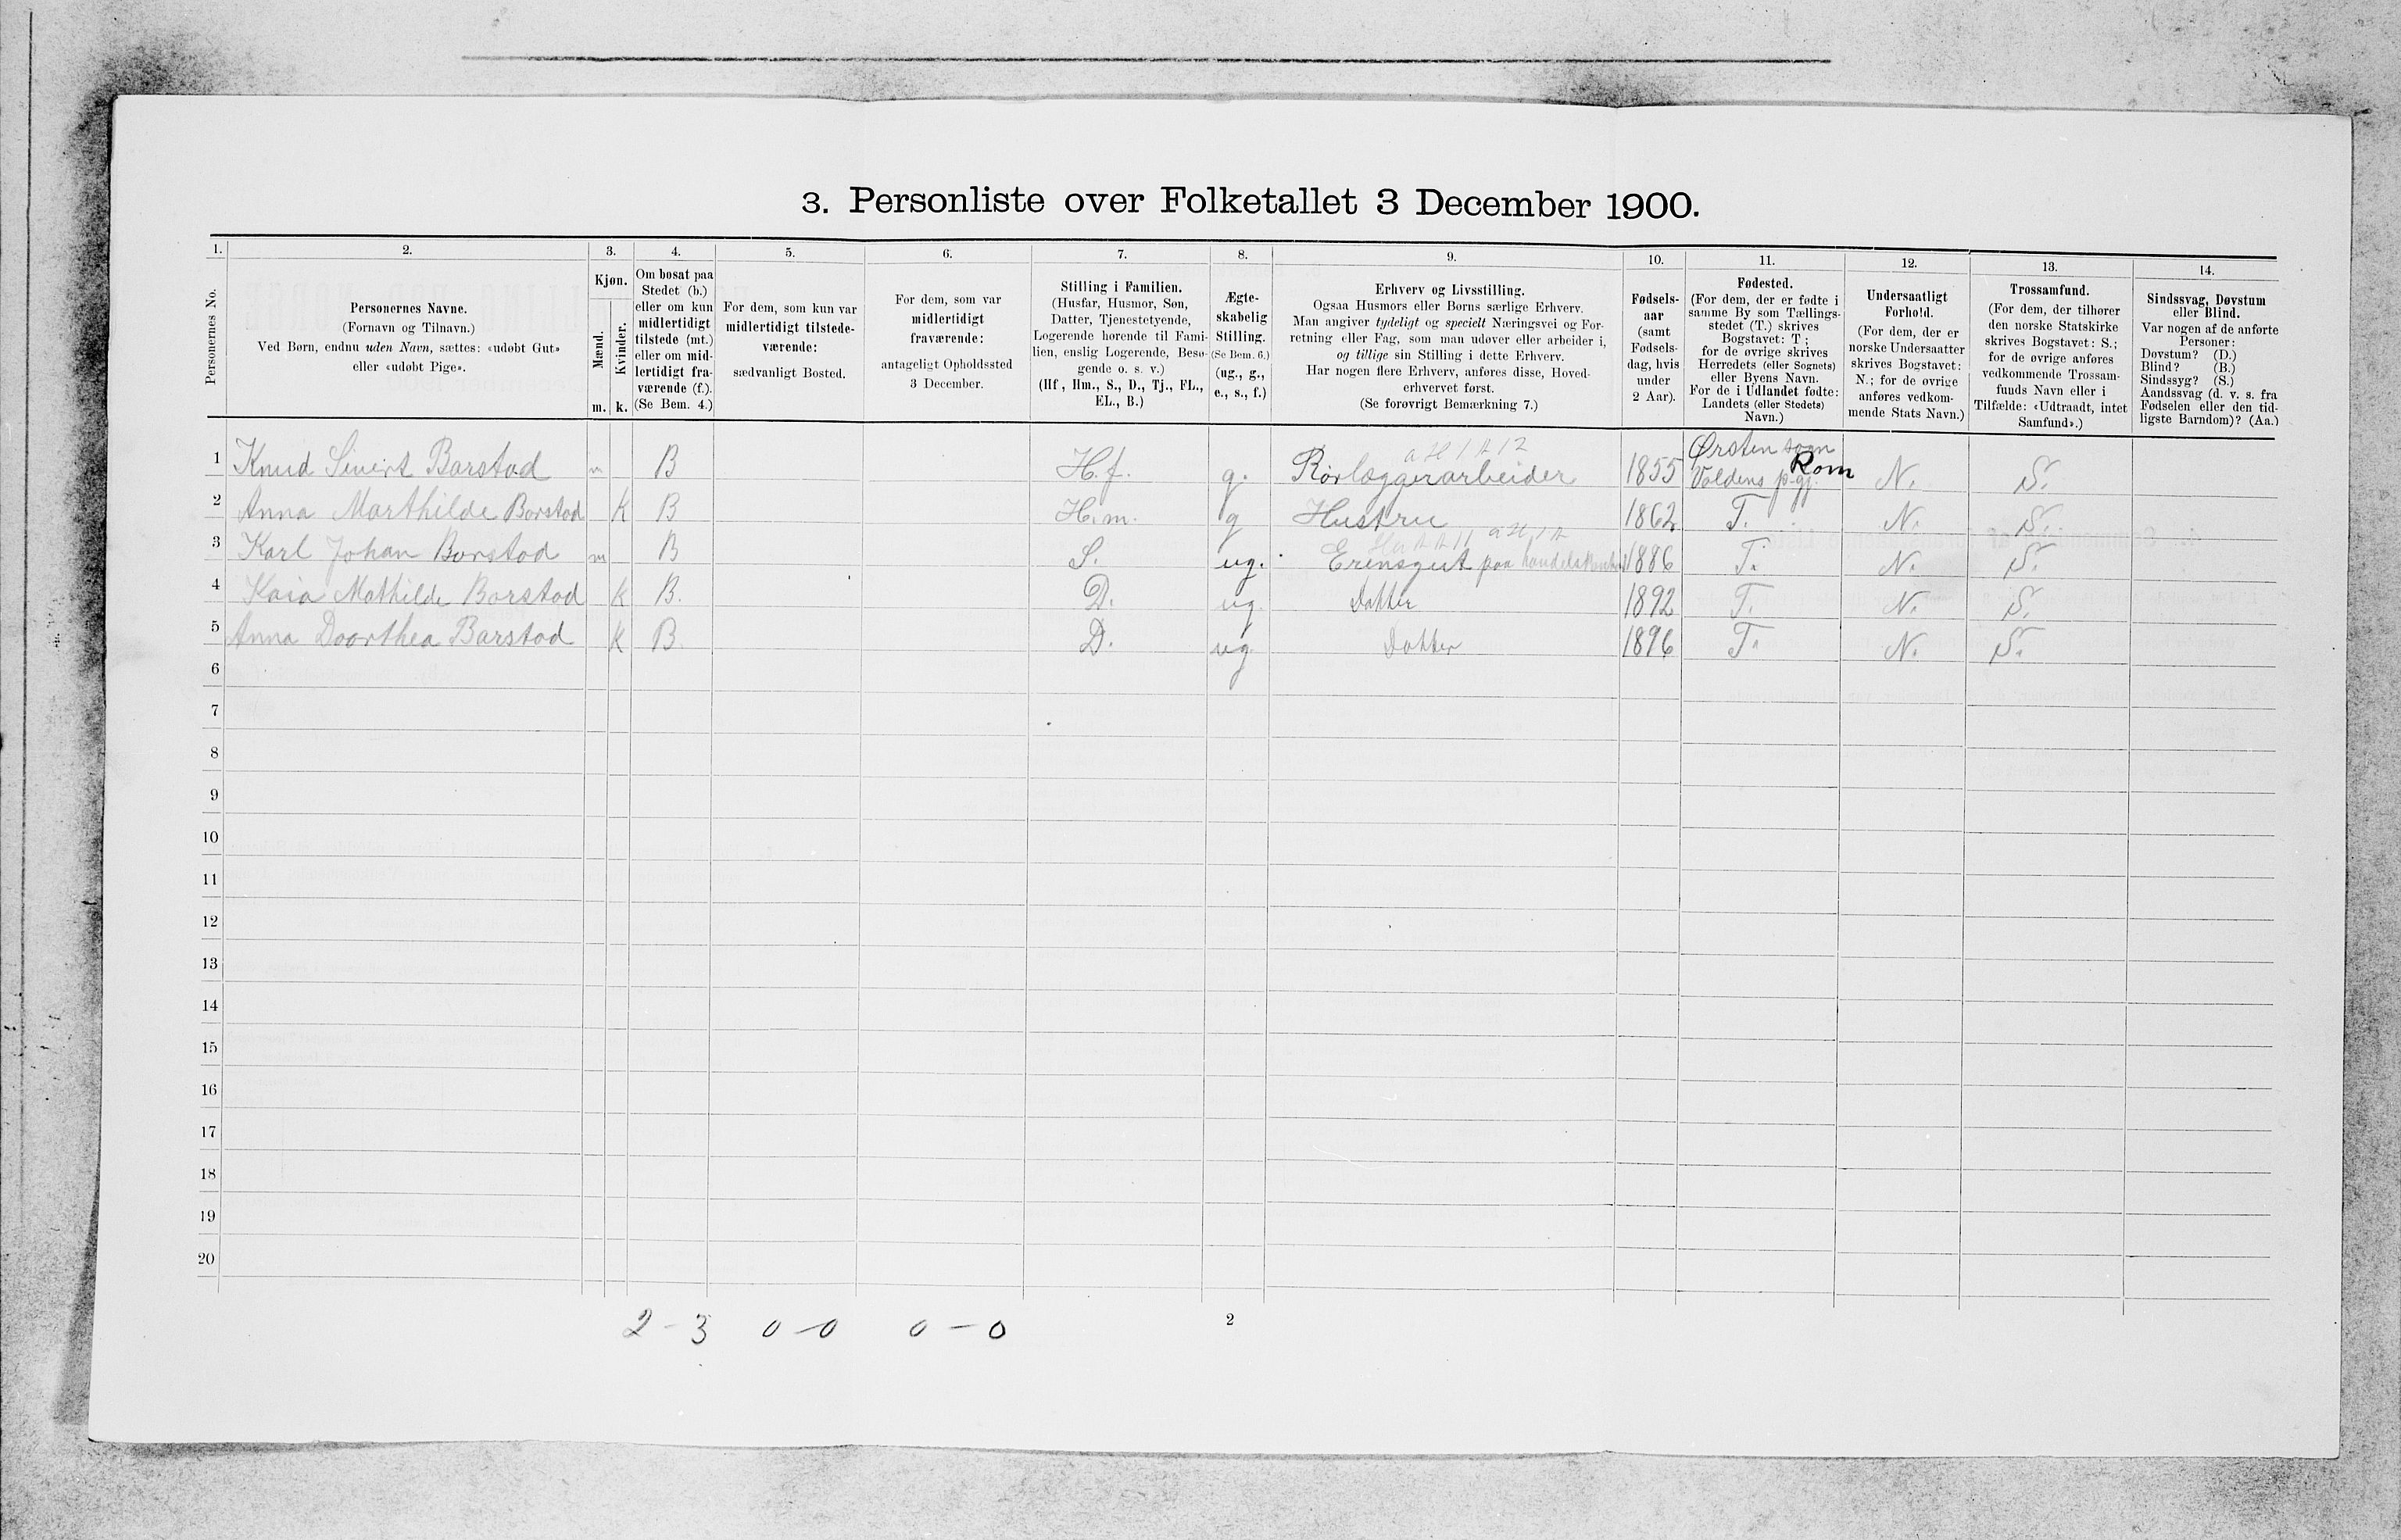 3. Personliste over Folketallet 3 December 1900.
1. 2. 3. 4. 5. 6. 7. 8. 9. 10. 11. 12. 13. 14.
Personernes No.
Personernes Navne.
(Fornavn og Tilnavn.)
Ved Børn, endnu uden Navn, sættes: «udøbt Gut»
eller «udøbt Pige».
Kjøn.
Mænd.
Kvinder.
m. k.
Om bosat paa
Stedet (b.)
eller om kun
midlertidigt
tilstede (mt.)
eller om mid-
lertidigt fra-
værende (f.).
(Se Bem. 4.)
For dem, som kun var
midlertidigt tilstede-
værende:
sædvanligt Bosted.
For dem, som var
midlertidigt
fraværende:
antageligt Opholdssted
3 December.
Stilling i Familien.
(Husfar, Husmor, Søn,
Datter, Tjenestetyende,
Logerende hørende til Fami-
lien, enslig Logerende, Besø-
gende o. s. v.)
(Hf., Hm., S., D., Tj., FL.,
EL., B.)
Ægte-
skabelig
Stilling.
(Se Bem. 6.)
(ug., g.,
e., s., f.)
Erhverv og Livsstilling.
Ogsaa Husmors eller Børns særlige Erhverv.
Man angiver tydeligt og specielt Næringsvei og For-
retning eller Fag, som man udøver eller arbeider i,
og tillige sin Stilling i dette Erhverv.
Har nogen flere Erhverv, anføres disse, Hoved-
erhvervet først.
(Se forøvrigt Bemærkning 7.)
Fødsels-
aar
(samt
Fødsels-
dag, hvis
under
2 Aar).
Fødested.
(For dem, der er fødte i
samme By som Tællings-
stedet (T.) skrives
Bogstavet: T;
for de øvrige skrives
Herredets (eller Sognets)
eller Byens Navn.
For de i Udlandet fødte:
Landets (eller Stedets)
Navn.)
Undersaatligt
Forhold.
(For dem, der er
norske Undersaatter
skrives Bogstavet:
N.; for de øvrige
anføres vedkom-
mende Stats Navn.)
Trossamfund.
(For dem, der tilhører
den norske Statskirke
skrives Bogstavet: S.;
for de øvrige anføres
vedkommende Trossam-
funds Navn eller i
Tilfælde: «Udtraadt, intet
Samfund».)
Sindssvag, Døvstum
eller Blind.
Var nogen af de anførte
Personer:
Døvstum? (D.)
Blind? (B.)
Sindssyg? (S.)
Aandssvag (d. v. s. fra
Fødselen eller den tid-
ligste Barndom)? (Aa.)
1 Knud Sivert Barstad m B H.f. g. Rørlæggerarbeider 1855 Ørsten sogn Voldens p.gj. Rom N. S.
2 Anna Marthilde Borstad K B H.m. g Hustru 1862 T. N. S.
3 Karl Johan Borstad m B S. ug. Erensgut paa 1886 T. N. S.
4 Kaia Mathilde Borstad K B. D. ug. Datter 1892 T. N. S.
5 Anna Doorthea Barstad K B. D. ug Datter 1896 T. N. S.
6
7
8
9
10
11
12
13
14
15
16
17
18
19
20
2 - 3 0 - 0 0 - 0
2